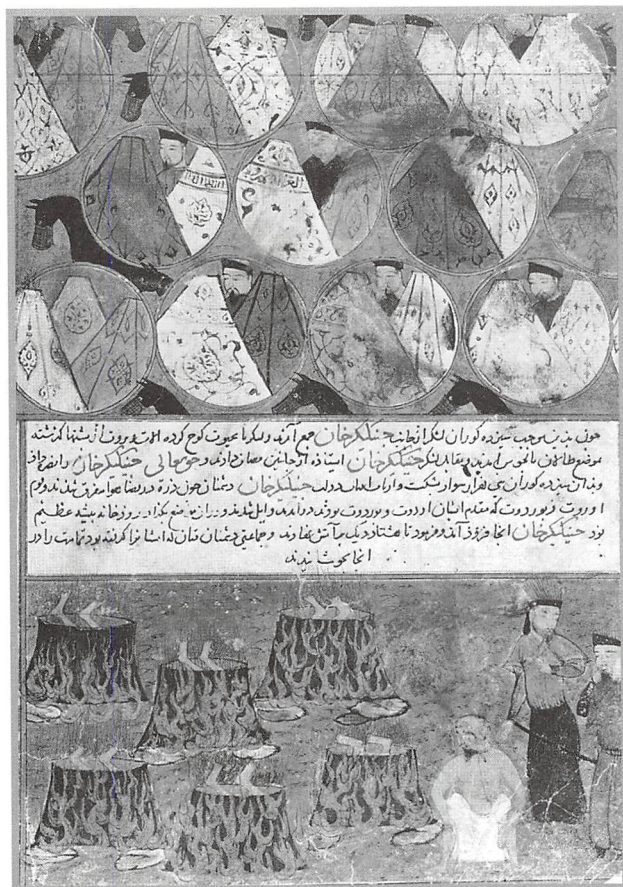 چون بدین موجب سیزده کوران لشکر از جانب جینککیزخان جمع آمدند و لشکر تایجیوت کوچ کرده از پشتها گذشته
موضع طالان بالجوس آمدند و مقابل لشکر جینککیزخان استاده از جانبین مصاف دادند و حق تعالی جینککیزخان را نصرة داد
و بدان سیزده کوران سی هزار سوار بشکست و از آفتاب دولت جینککیزخان دشمنان چون ذره در فضا هوا متفرق شدند و قوم
اوروت و بوردوت که مقدم ایشان اودوت و بوردوت بودند در آمدند و ایل شدند و در آن موضع بکنار رودخانه بیشه عظیم
بود جینککیزخان آنجا فرود آمد و فرمود تا هفتاد دیک بر آتش نهادند و جماعتی دشمنان فتان که ایشانرا گرفته بود تمامت را در
آنجا بجوشانیدند